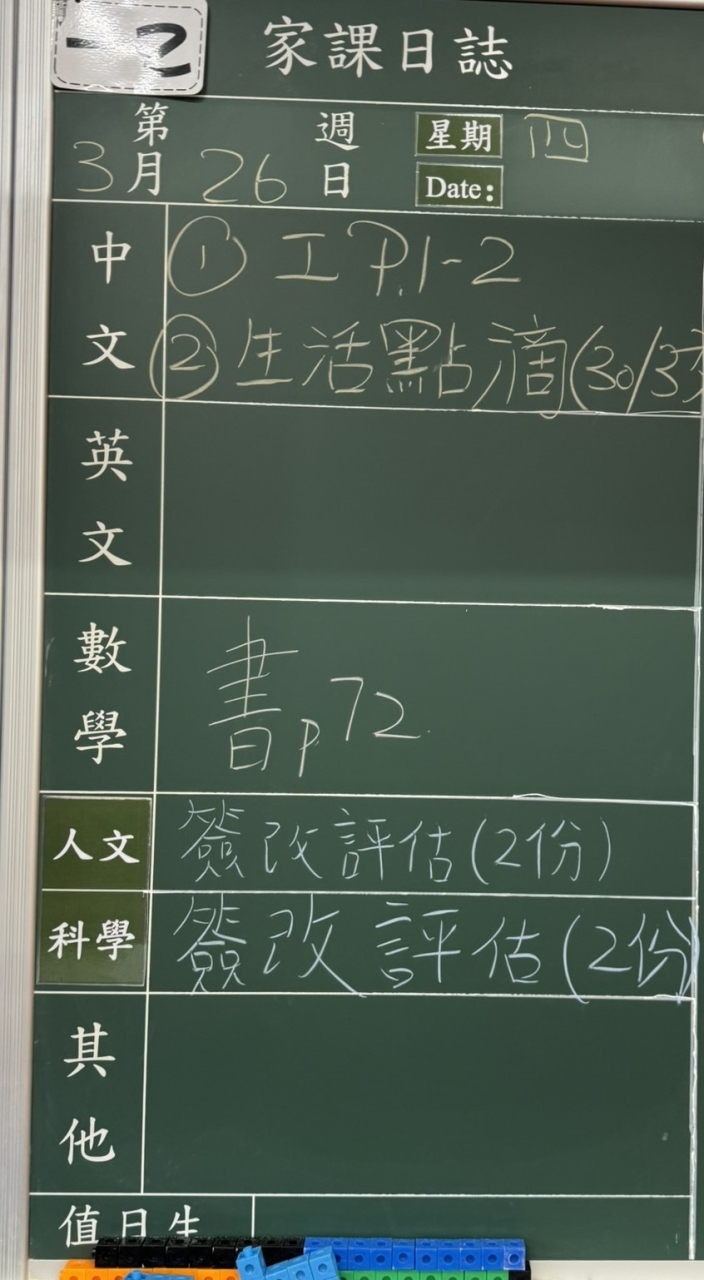 家課日誌
第 週 星期 四
3月26日 Date:
中文 ① 工 P.1-2
② 生活點滴(30/3交
英文
數學 書p72
人文 簽改評估(2份)
科學 簽改評估(2份)
其他
值日生